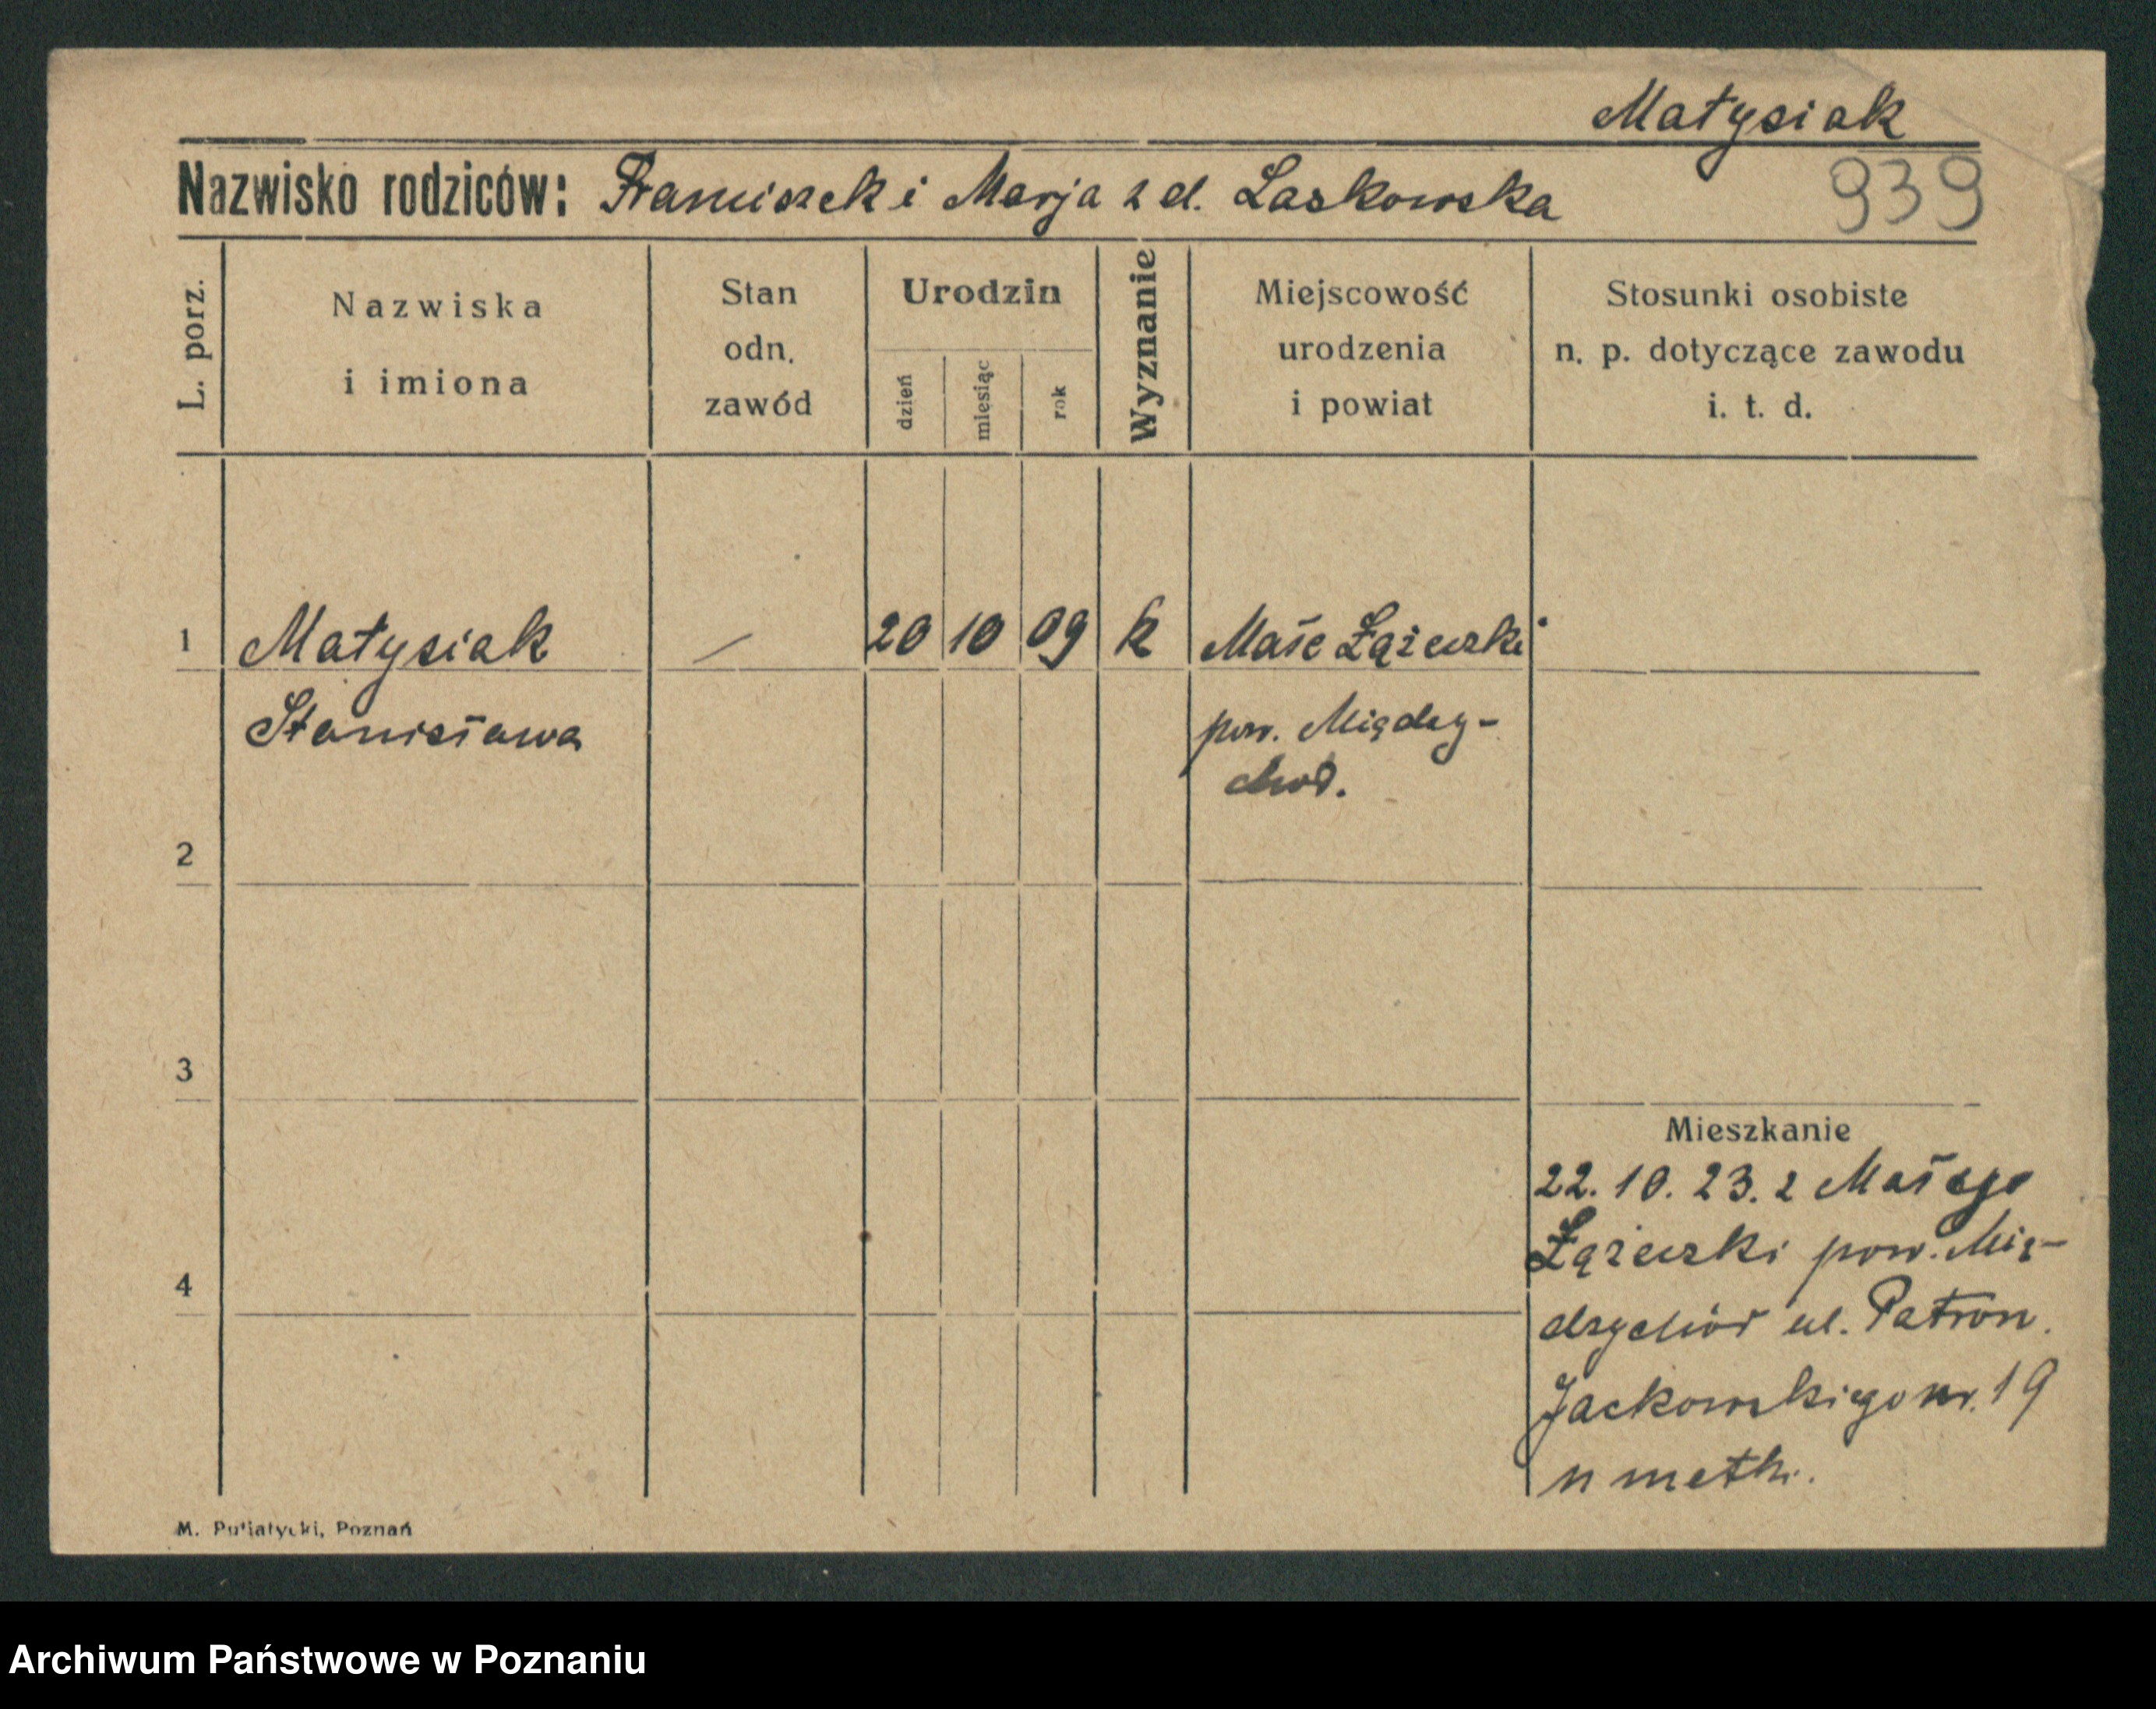 Matysiak
Nazwisko rodziców: Franciszek i Marja z d. Laskowska 939
L. porz.
Nazwiska
i imiona
Stan
odn.
zawód
Urodzin
dzień
miesiąc
rok
Wyznanie
Miejscowość
urodzenia
i powiat
Stosunki osobiste
n. p. dotyczące zawodu
i. t. d.
1 Matysiak — 20 10 09 k Małe Łążeczki
Stanisława pow. Między-
chod.
2
3
Mieszkanie
22. 10. 23. z Małego
Łążeczki pow. Mię-
4
dzychód ul. Patron.
Jackowskiego nr. 19
u matki.
M. Putiatycki, Poznań
Archiwum Państwowe w Poznaniu